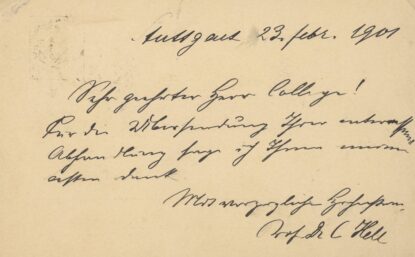 Stuttgart 23. febr. 1901
Sehr geehrter Herr College!
Für die Übersendung Ihrer interessanten
Abhandlung sage ich Ihnen meinen
besten Dank
Mit vorzüglicher Hochachtung
Prof. Dr C Hell